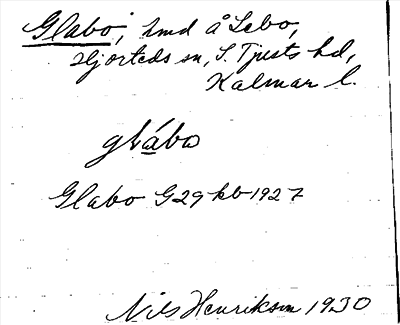 Glabo, hmd å Lebo,
Hjorteds sn, S. Tjusts hd,
Kalmar l.
glába
Glabo G29 kb 1927
Nils Henrikson 1930